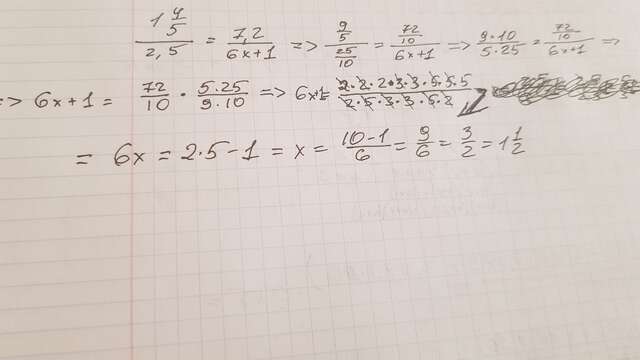 1 4/5 / 2,5 = 7,2 / 6x+1 => 9/5 / 25/10 = 72/10 / 6x+1 => 9·10 / 5·25 = 72/10 / 6x+1 =>
=> 6x+1 = 72/10 · 5·25 / 9·10 => 6x+1= 2·2·2·3·3·5·5·5 / 2·5·3·3·5·2
= 6x = 2·5-1 = x = 10-1 / 6 = 9/6 = 3/2 = 1 1/2